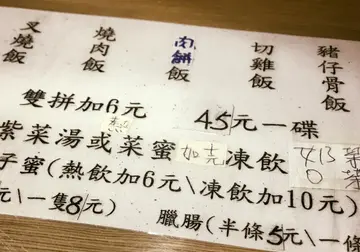 叉燒飯
燒肉飯
肉餅飯
切雞飯
豬仔骨飯
雙拼加6元 45元一碟
紫菜湯或菜蜜 加 元 凍飲
子蜜(熱飲加6元\凍飲加10元)
元\一隻8元) 臘腸(半條5元\一條